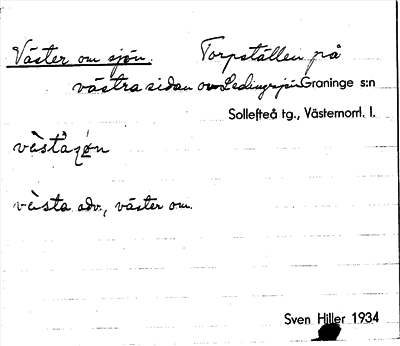 Väster om sjön. Torpställen på
västra sidan om Ledingesjön Graninge s:n
Sollefteå tg., Västernorrl. l.
västa adv., väster om.
Sven Hiller 1934